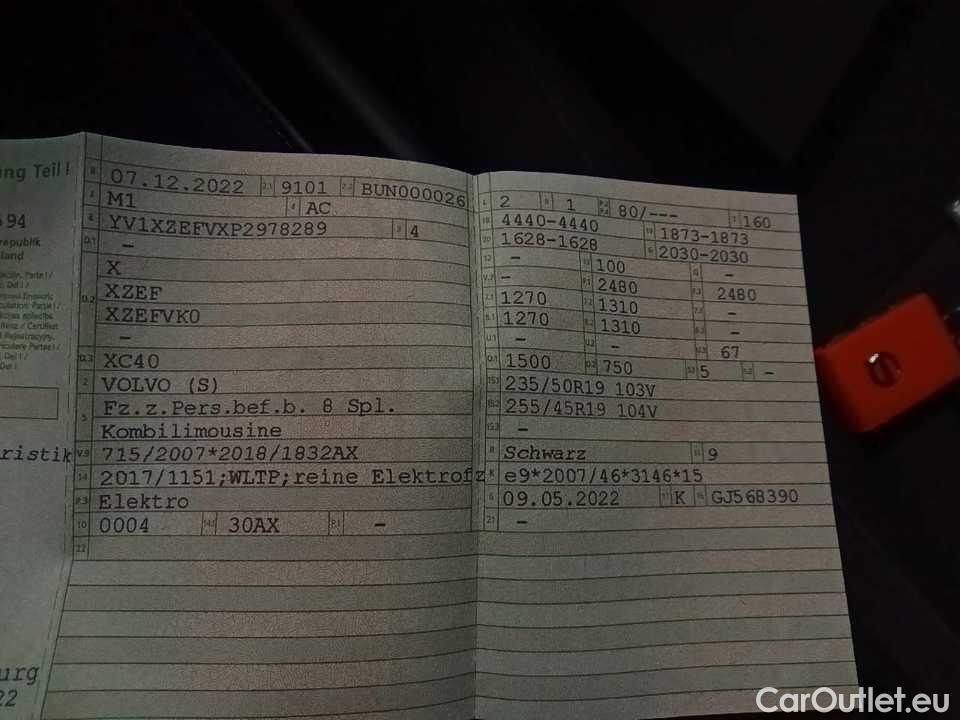 ng Teil I
694
republik
land
B 07.12.2022 2.1 9101 2.2 BUN000026
J M1 4 AC
E YV1XZEFVXP2978289 3 4
D.1 –
X
D.2 XZEF
XZEFVK0
–
D.3 XC40
2 VOLVO (S)
5 Fz.z.Pers.bef.b. 8 Spl.
Kombilimousine
V.9 715/2007*2018/1832AX
14 2017/1151;WLTP;reine Elektrofz
P.3 Elektro
10 0004 14.1 30AX P.1 –
22
L 2 9 1 P.2 P.4 80/--- T 160
18 4440-4440 19 1873-1873
20 1628-1628 G 2030-2030
12 – 13 100 Q –
V.7 – F.1 2480 F.2 2480
7.1 1270 7.2 1310 7.3 –
8.1 1270 8.2 1310 8.3 –
U.1 – U.2 – U.3 67
O.1 1500 O.2 750 S.1 5 S.2 –
15.1 235/50R19 103V
15.2 255/45R19 104V
15.3 –
R Schwarz 11 9
K e9*2007/46*3146*15
6 09.05.2022 17 K 16 GJ568390
21 –
ristik
urg
22
CarOutlet.eu